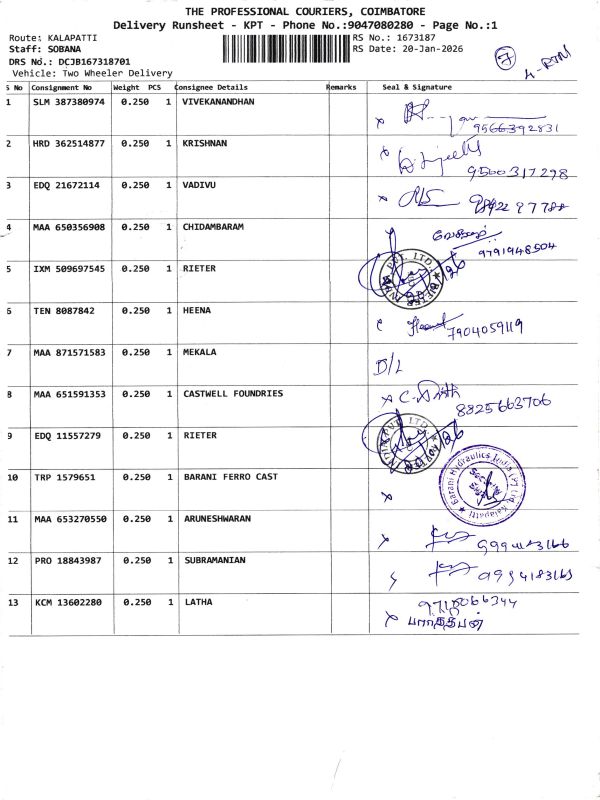 THE PROFESSIONAL COURIERS, COIMBATORE
Delivery Runsheet - KPT - Phone No.:9047080280 - Page No.:1
Route: KALAPATTI
RS No.: 1673187
Staff: SOBANA
RS Date: 20-Jan-2026
DRS No.: DCJB167318701
Vehicle: Two Wheeler Delivery
7
4-RTN
S No Consignment No Weight PCS Consignee Details Remarks Seal & Signature
1 SLM 387380974 0.250 1 VIVEKANANDHAN
9566392831
2 HRD 362514877 0.250 1 KRISHNAN
9500317298
3 EDQ 21672114 0.250 1 VADIVU
4 MAA 650356908 0.250 1 CHIDAMBARAM
9791948504
5 IXM 509697545 0.250 1 RIETER
6 TEN 8087842 0.250 1 HEENA
7904059119
7 MAA 871571583 0.250 1 MEKALA
D/L
8 MAA 651591353 0.250 1 CASTWELL FOUNDRIES
8825663706
9 EDQ 11557279 0.250 1 RIETER
10 TRP 1579651 0.250 1 BARANI FERRO CAST
Barani Hydraulics India (P) Ltd. Kalapatti
11 MAA 653270550 0.250 1 ARUNESHWARAN
12 PRO 18843987 0.250 1 SUBRAMANIAN
13 KCM 13602280 0.250 1 LATHA
பார்த்திபன்